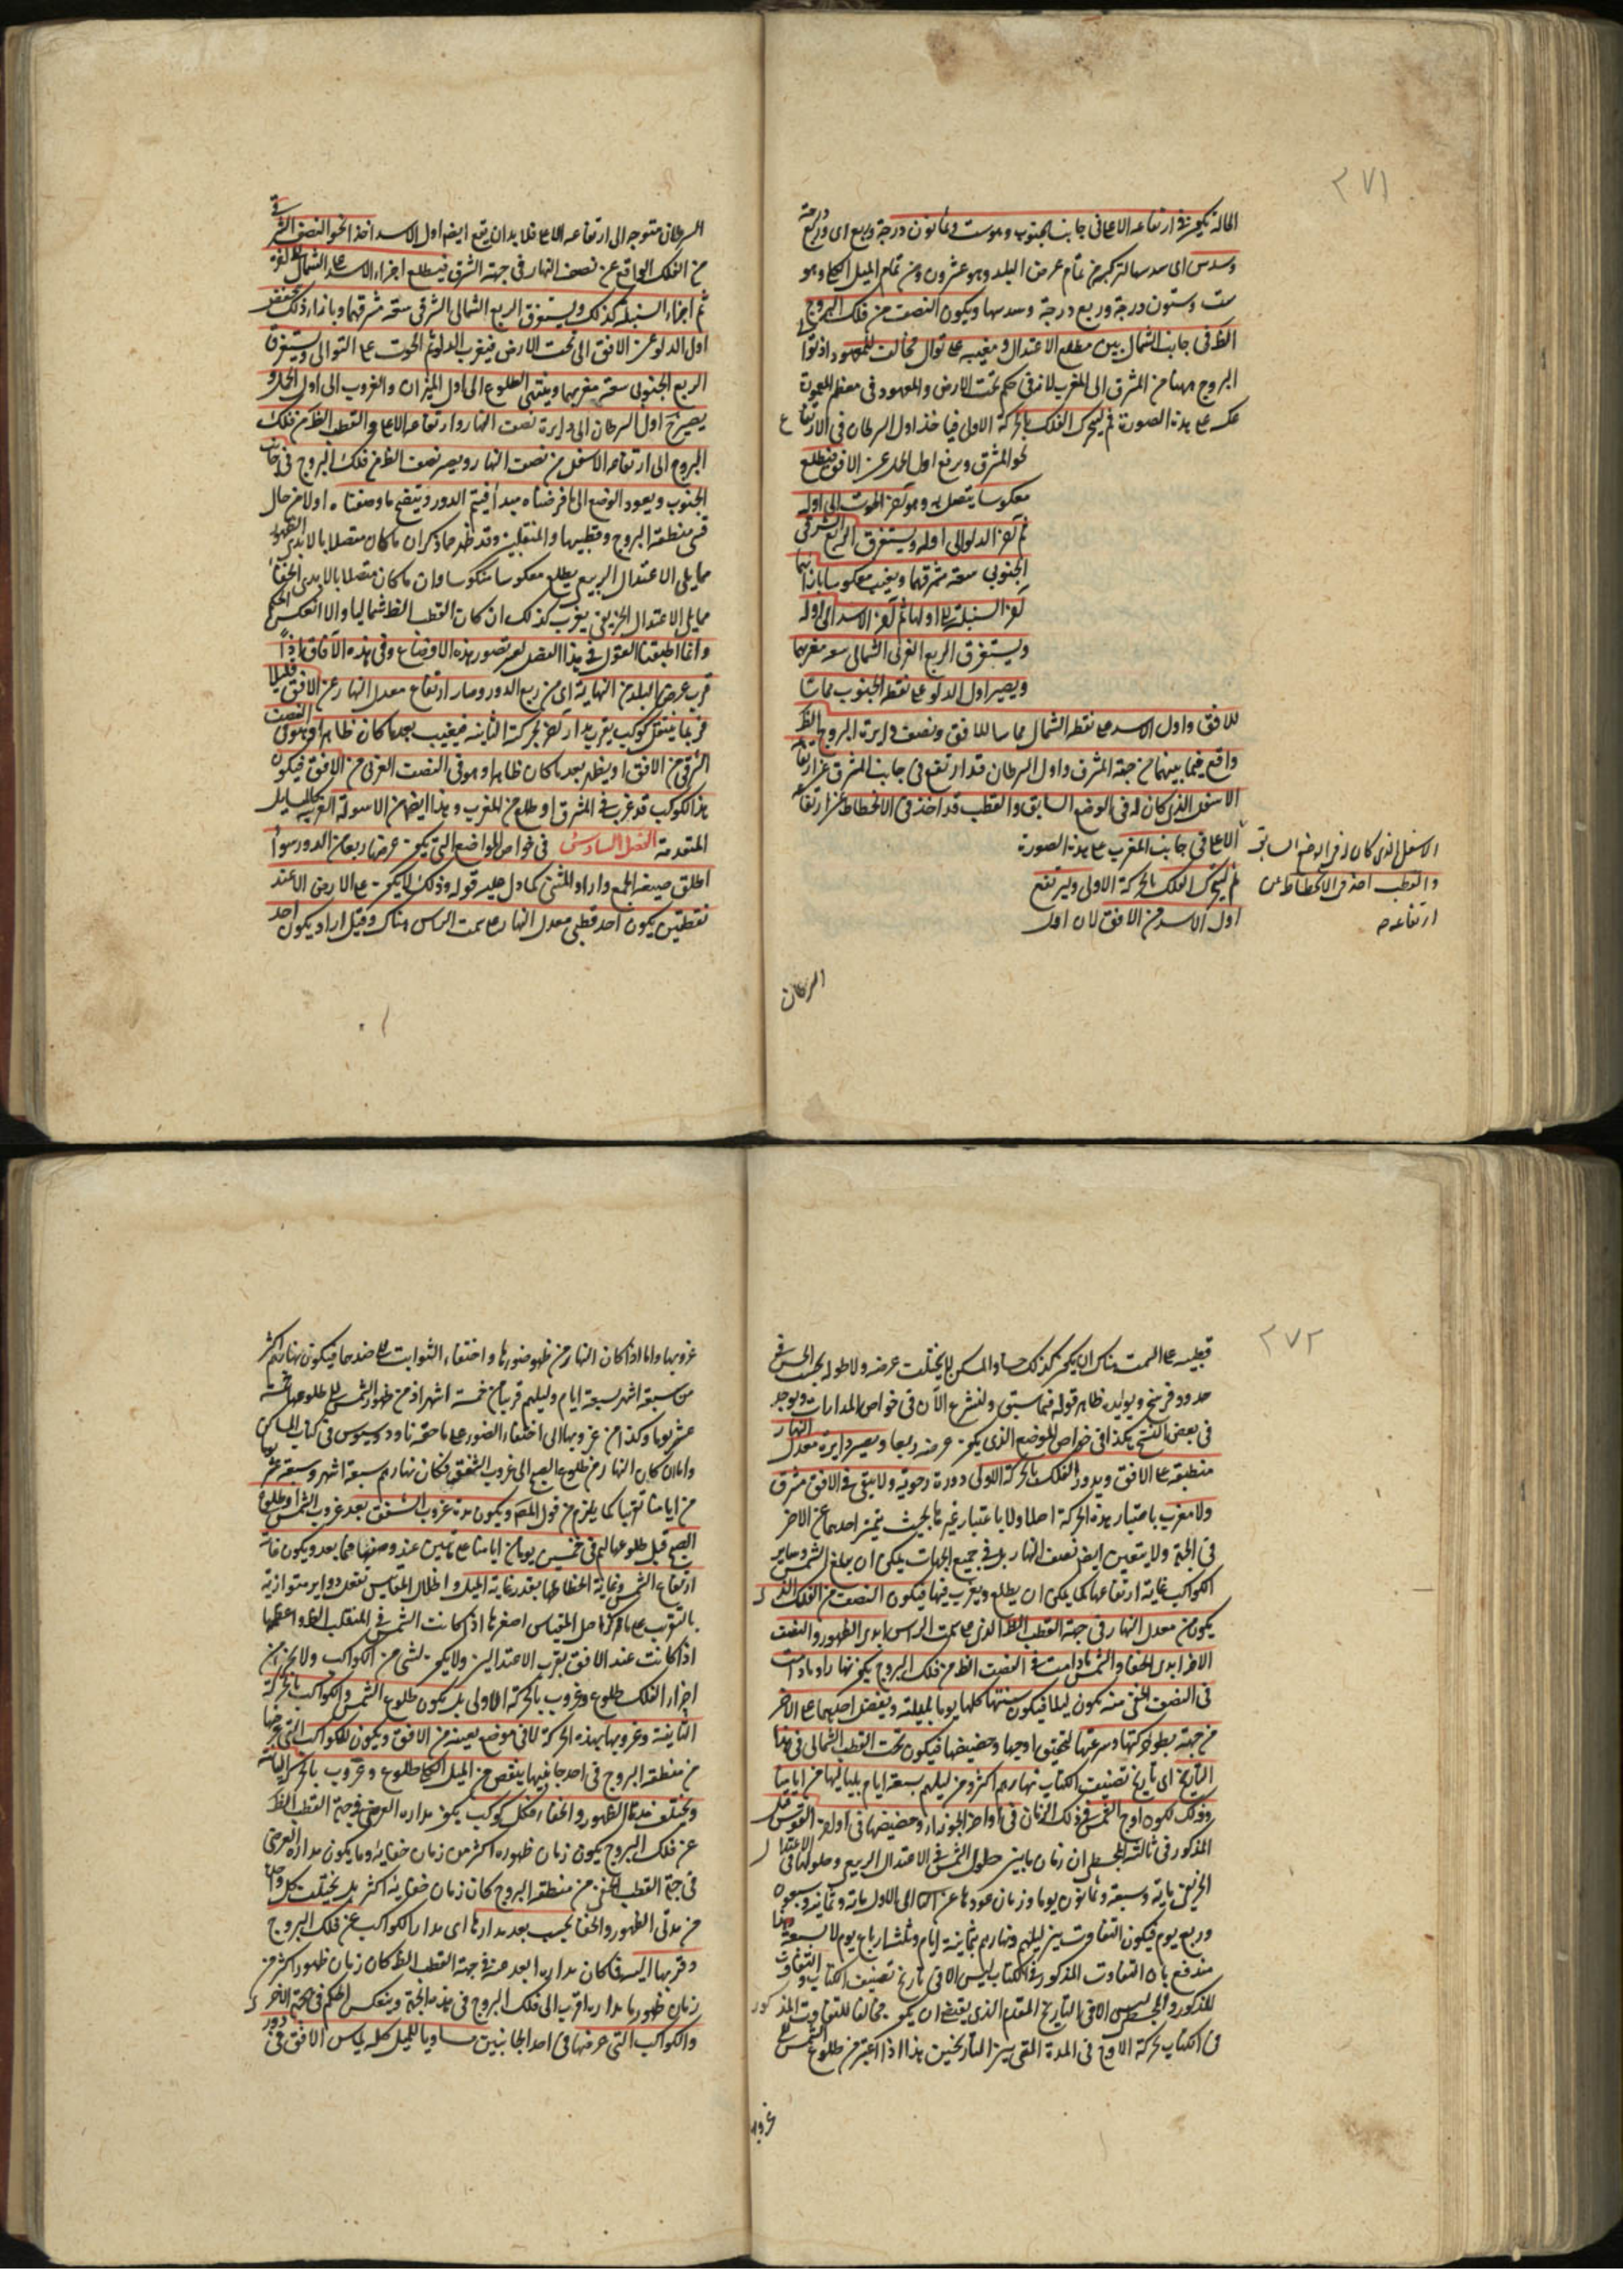 ٢٧١
الحالة يكون في ارتفاعه الاعلى في جانب الجنوب وهو ست وثمانون درجة وربع اى درجة
وسدس اى سدسها لتركبه من تمام عرض البلد وهو عشرون ومن تمام الميل الكلى وهو
ست وستون درجة وربع درجة وسدسها ويكون النصف من فلك البروج
الظ فى جانب الشمال بين مطلع الاعتدال ومغيبه على توال مخالف للمعهود اذ توالى
البروج ههنا من المشرق الى المغرب لانه فى حكم تحت الارض والمعهود فى معظم المعمورة
عكسه على هذه الصورة ثم ليتحرك الفلك بالحركة الاولى فياخذ اول السرطان فى الارتفاع
نحو المشرق ويرفع اول الحمل عن الافق فيطلع
معكوسا يتصل به وهو آخر الحوت الى اوله
ثم آخر الدلو الى اوله ويستغرق الربع الشرقى
الجنوبى سعة مشرقهما ويغيب معكوسا بازائهما
آخر السنبلة الى اولها ثم آخر الاسد الى اوله
ويستغرق الربع الغربى الشمالى سعة مغربهما
ويصير اول الدلو على نقطة الجنوب مماسا
للافق واول الاسد على نقطة الشمال مماسا للافق ونصف دايرة البروج الظ
واقع فيما بينهما من جهة المشرق واول السرطان قد ارتفع فى جانب المشرق عن ارتفاعه
الاسفل الذى كان له فى الوضع السابق والقطب قد اخذ فى الانحطاط عن ارتفاعه
الاعلى فى جانب المغرب على هذه الصورة
ثم ليتحرك الفلك بالحركة الاولى ويرتفع
اول الاسد من الافق لان اول
الاسفل الذى كان له فى الوضع السابق
والقطب اخذ فى الانحطاط عن
ارتفاعه
السرطان
السرطان متوجه الى ارتفاعه الاعلى فلا بد ان يقع ايضا اول الاسد اخذا نحو النصف الشرقى
من الفلك الواقع عن نصف النهار فى جهة الشرق فيطلع اجزاء الاسد على
ثم اجزاء السنبلة كذلك ويستغرق الربع الشمالى الشرقى سعة مشرقهما وبازاء ذلك ينخفض
اول الدلو عن الافق الى تحت الارض فيغرب الدلو ثم الحوت على التوالى ويستغرق
الربع الجنوبى سعة مغربهما وينتهى الطلوع الى اول الميزان والغروب الى اول الحمل و
يصير ح اول السرطان الى دايرة نصف النهار وارتفاعه الاعلى والقطب الظ من فلك
البروج الى ارتفاعه الاسفل من نصف النهار ويصير نصف الظ من فلك البروج فى جانب
الجنوب ويعود الوضع الى ما فرضناه مبدأ فيتم الدور ويتضح ما وصفناه اولا من حال
قسى منطقة البروج وقطبيها والمنقلبين وقد ظهر مما ذكر ان ما كان متصلا بالابدى الظهور
مما يلى الاعتدال الربيعى يطلع معكوسا منكوسا وان ما كان متصلا بالابدى الخفاء
مما يلى الاعتدال الخريفى يغرب كذلك ان كان القطب الظ شماليا والا انعكس الحكم
وانما اطنبنا القول فى هذا الفصل لعسر تصور هذه الاوضاع وفى هذه الآفاق اذا
قرب عرض البلد من النهاية اى من ربع الدور وصار ارتفاع معدل النهار عن الافق قليلا
فربما ينتقل كوكب بقرب مدار آخر بحركة الثانية فيغيب بعد ما كان ظاهرا وهو فى النصف
الشرقى من الافق او يظهر بعد ما كان ظاهرا وهو فى النصف الغربى من الافق فيكون
هذا الكوكب قد غرب فى المشرق او طلع من المغرب وهذا ايضا من الاسولة الغريبة كالمسايل
المتقدمة الفصل السادس فى خواص المواضع التى يكون عرضها ربعا من الدور سواء
اطلق صيغة الجمع واراد المثنى كما دل عليه قوله وذلك لا يكون على الارض الا عند
نقطتين يكون احد قطبى معدل النهار على سمت الراس هناك وقيل اراد بكون احد
٢٧٢
قطبيه على السمت هناك ان يكون كذلك حسا والمسكن لا يختلف عرضه ولا طوله بحسب الحس فى
حدود فرسخ ويؤيده ظاهر قوله فيما سبق ولنشرع الآن فى خواص المدارات ويوجد
فى بعض النسخ هكذا فى خواص الموضع الذى يكون عرضه ربعا ويصير دايرة معدل النهار
منطبقة على الافق ويدور الفلك بالحركة الاولى دورة رحوية ولا يبقى فى الافق مشرق
ولا مغرب باعتبار هذه الحركة اصلا ولا باعتبار غيرها بحيث يتميز احدهما عن الاخر
فى الجهة ولا يتعين ايضا نصف النهار بل فى جميع الجهات يمكن ان يبلغ الشمس وساير
الكواكب غاية ارتفاعها كما يمكن ان يطلع ويغرب فيها فيكون النصف من الفلك الذى
يكون من معدل النهار فى جهة القطب الظ الذى على سمت الراس ابدى الظهور والنصف
الاخر ابدى الخفاء والشمس ما دامت فى النصف الظ من فلك البروج يكون نهارا وما دامت
فى النصف الخفى منه يكون ليلا فيكون سنتها كلها يوما بليلته ويفضل احدهما على الاخر
من جهة بطؤ حركتها وسرعتها لتحقق اوجها وحضيضها فيكون تحت القطب الشمالى فى هذا
التاريخ اى تاريخ تصنيف الكتاب نهارهم اكثر من ليلهم بسبعة ايام بلياليها من ايامنا
وذلك لكون اوج الشمس فى ذلك الزمان فى اواخر الجوزاء وحضيضها فى اواخر القوس
المذكور فى ثالثة المجسطى ان زمان ما بين حلول الشمس فى الاعتدال الربيعى وحلولها فى الاعتدال
الخريفى مائة وسبعة وثمانون يوما وزمان عودها عن الى الاول مائة وثمانية وسبعون
وربع يوم فيكون التفاوت بين ليلهم ونهارهم بثمانية ايام وثلثة ارباع يوم لا بسبعة
مندفع بان التفاوت المذكور فى الكتاب ليس الا فى تاريخ تصنيف الكتاب والتفاوت
المذكور فى المجسطى ليس الا فى التاريخ المقدم الذى يقتضى ان يكون مخالفا للتفاوت المذكور
فى الكتاب بحركة الاوج فى المدة التى بين التاريخين هذا اذا اعتبر من طلوع الشمس الى
غروبها
غروبها واما اذا كان النهار من ظهور ضوئها واختفاء الثوابت الى ضدهما فيكون نهارهم اكثر
من سبعة اشهر بسبعة ايام وليلهم قريبا من خمسة اشهر اذ من ظهور الشمس الى طلوعها خمسة
عشر يوما وكذا من غروبها الى اختفاء الضوء على ما حققه ثاودوسيوس فى كتاب المساكن
واما ان كان النهار من طلوع الصبح الى غروب الشفق فكان نهارهم سبعة اشهر وسبعة عشر يوما
من ايامنا تقريبا كما يلزم من قول المص ويكون مدة غروب الشفق بعد غروب الشمس او طلوع
الصبح قبل طلوعها لهم فى خمسين يوما من ايامنا على ما تبين عند وصفها فيما بعد ويكون غاية
ارتفاع الشمس وغاية انحطاطها بقدر غاية الميل واظلال المقاييس تفعل دواير متوازية
بالتقريب على مراكز اصل المقياس اصغرها اذا كانت الشمس فى المنقلب الظ واعظمها
اذا كانت عند الافق بقرب الاعتدالين ولا يكون لشىء من الكواكب ولا لجزء من
اجزاء الفلك طلوع وغروب بالحركة الاولى بل يكون طلوع الشمس والكواكب بالحركة
الثانية وغروبها بهذه الحركة لا فى موضع بعينه من الافق ويكون للكواكب التى عرضها
من منطقة البروج فى احد جانبيها ينقص من الميل الكلى طلوع وغروب بالحركة الثانية
ويختلف مدتا الظهور والخفاء فكل كوكب يكون مداره العرضى فى جهة القطب الظ
عن فلك البروج يكون زمان ظهوره اكثر من زمان خفائه وما يكون مداره العرضى
فى جهة القطب الخفى من منطقة البروج كان زمان خفائه اكثر بل يختلف كل واحدة
من مدتى الظهور والخفاء بحسب بعد مدارها اى مدار الكواكب عن فلك البروج
وقربها اليه فما كان مداره ابعد عنه فى جهة القطب الظ كان زمان ظهوره اكثر من
زمان ظهور ما مداره اقرب الى فلك البروج فى هذه الجهة وينعكس الحكم فى الجهة الاخرى
والكواكب التى عرضها فى احد الجانبين مساويا للميل كله يماس الافق فى دور